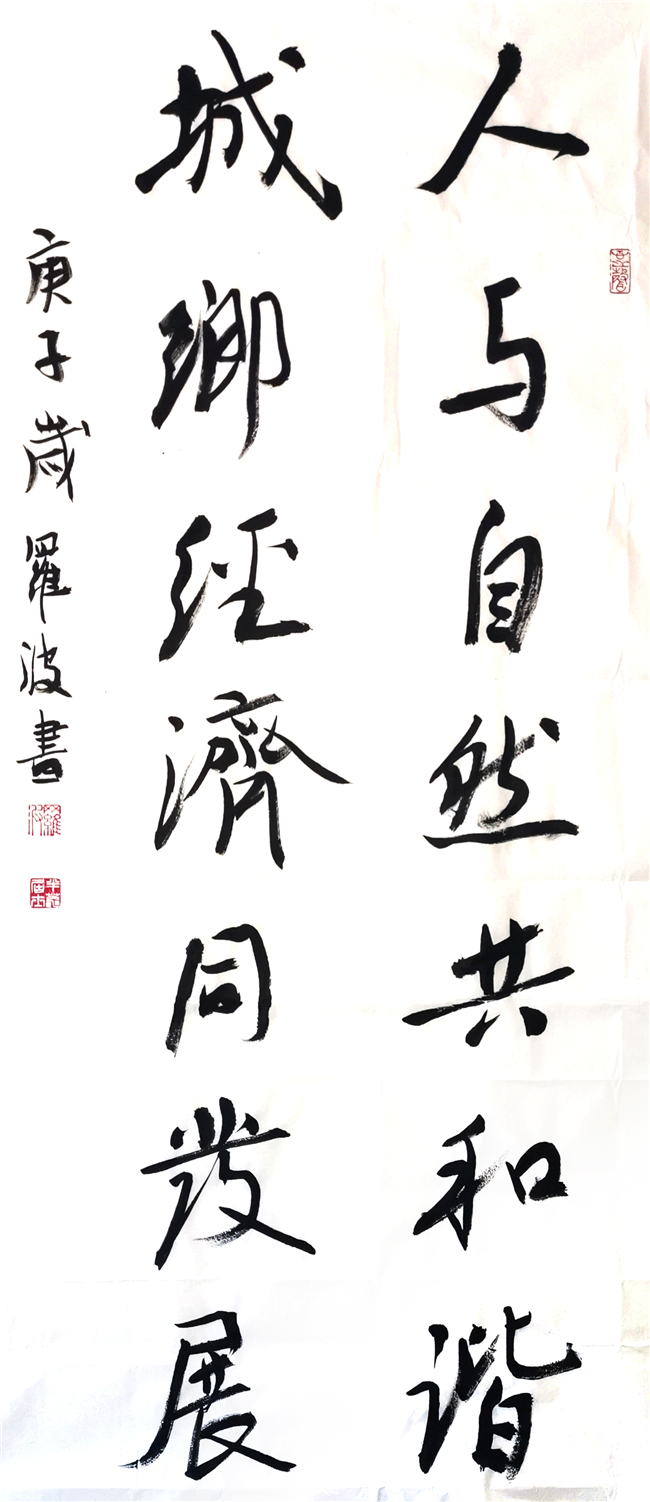 人与自然共和谐
城鄉经濟同发展
庚子歲羅波書
羅波